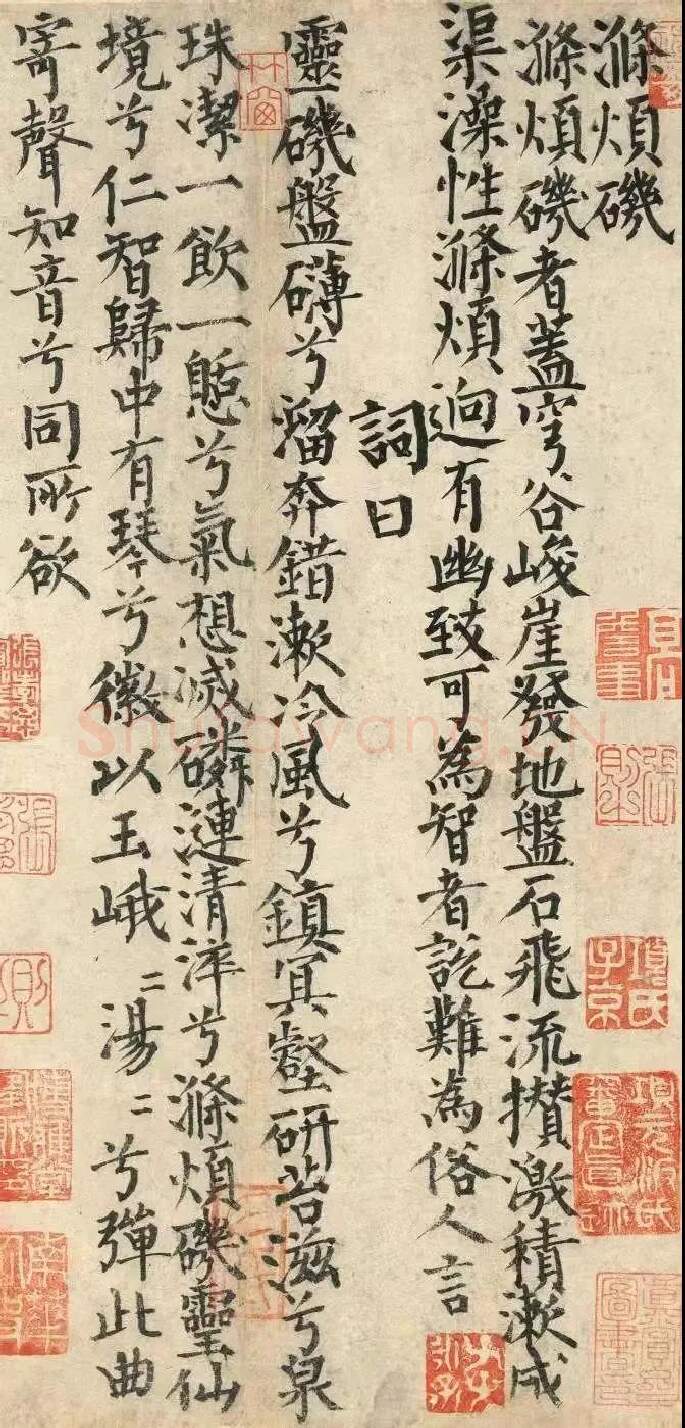 滌煩磯
滌煩磯者蓋穹谷峻崖發地盤石飛流攅激積漱成
渠澡性滌煩迥有幽致可為智者說難為俗人言
詞曰
靈磯盤礴兮溜奔錯漱冷風兮鎮冥壑研苔滋兮泉
珠潔一飲一憩兮氣想滅磷漣清淬兮滌煩磯靈仙
境兮仁智歸中有琴兮徽以玉峨〻湯〻兮彈此曲
寄聲知音兮同所欲
項氏子京
shufawang.cn